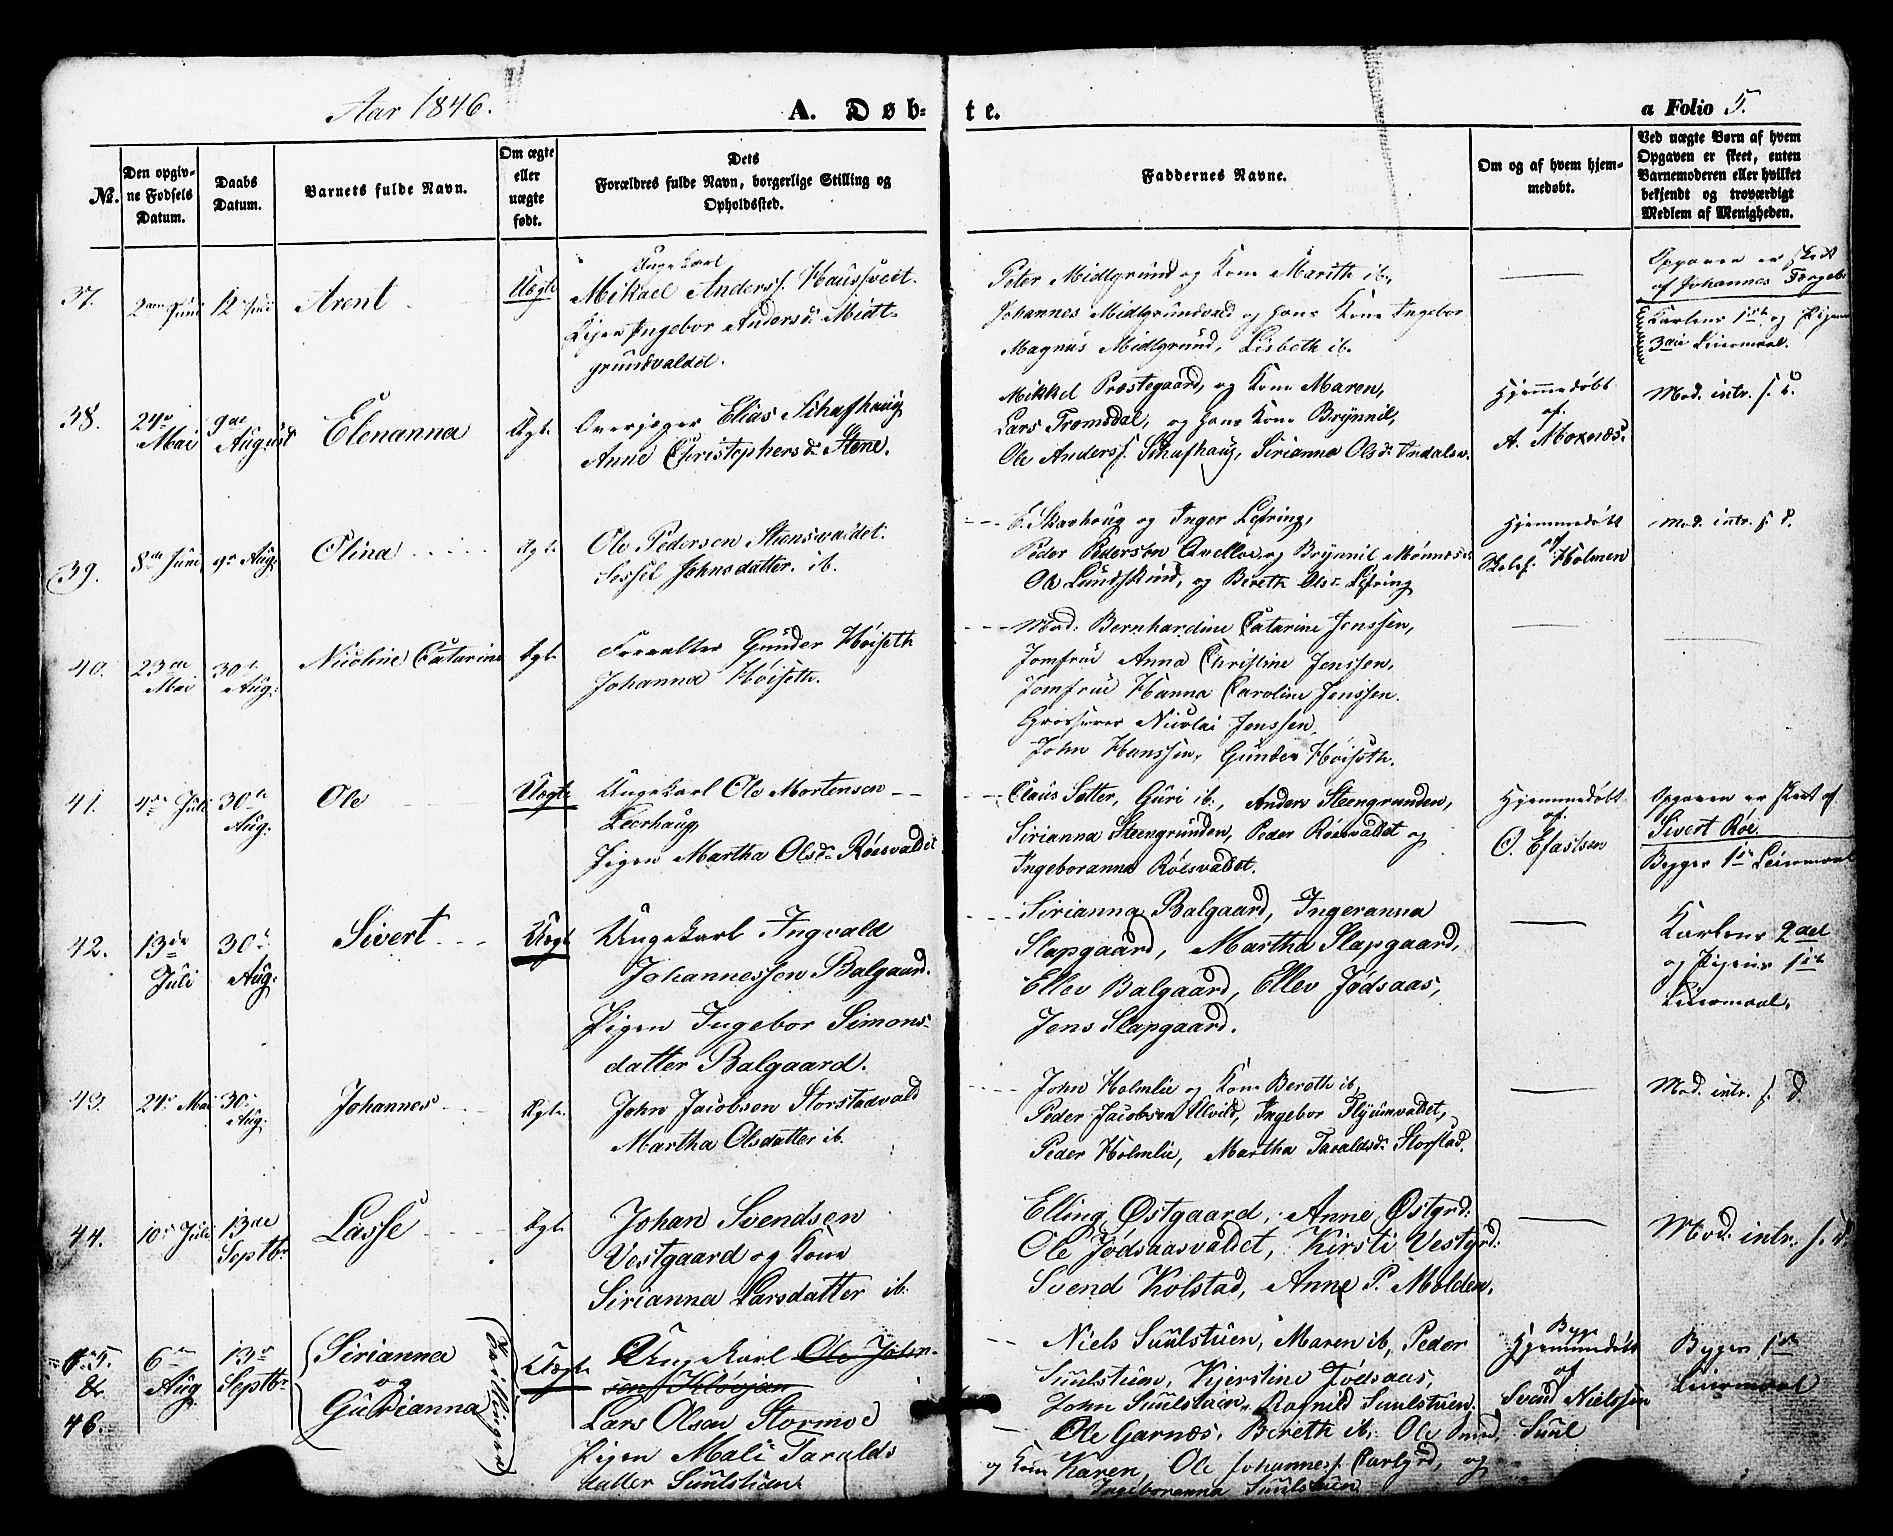 Aar 1846.
A. Døb-
te.
a Folio 5.
No.
Den opgiv-
ne Fødsels
Datum.
Daabs
Datum.
Barnets fulde Navn.
Om ægte
eller
uægte
født.
Dets
Forældres fulde Navn, borgerlige Stilling og
Opholdssted.
Faddernes Navne.
Om og af hvem hjem-
medøbt.
Ved uægte Børn af hvem
Opgaven er skeet, enten
Barnemoderen eller hvilket
bekjendt og troværdigt
Medlem af Menigheden.
37.
Juni
12 Juni
Arent
Uægte
Ungekarl
Mikael Anderss.
Pigen Ingebor Andersd. Midt-
grundvaldet.
Peter Midtgrund og Kone Marith ib.
Johannes Midtgrundvald og hans Kone Ingebor
Magnus Midtgrund, Lisbeth ib.
Opgaven er skeet
af Johannes
Karlens 1ste og Pigens
3die Leiermaal.
38.
24de
Mai
9de
August
Elenanna
Ægte
Overjæger Elias Schafhaug
Anne Christophersd. Stene.
Mikkel Præstegaard, og Kone Maren,
Lars Tromsdal, og hans Kone Brynnil,
Ole Anderss. Schafhaug, Sirianna Olsd.
Hjemmedøbt
af
A. Moxnæs.
Mod. intr. s. D.
39.
8de Juni
9de Aug:
Olina
Ægte
Ole Pedersen Steensvaldet.
Sessel Johnsdatter ib.
E. Skavhaug og Inger Lefring,
Peder Pedersen og Brynnil
Ole og Bereth Olsd. Lefring
Hjemmedøbt
af
Holmen
Mod. intr. s. D.
40.
23de
Mai
30te
Aug:
Nicoline Catarine
Ægte
Forvalter Gunder Høiseth
Johanna Høiseth.
Mad: Bernhardine Catarine Jenssen,
Jomfrue Anna Christine Jenssen,
Jomfrue Hanna Caroline Jenssen.
Grosserer Nicolai Jenssen,
John Hanssen, Gunder Høiseth.
41.
4de Juli
30te
Aug.
Ole
Uægte
Ungekarl Ole Mortensen
Leerhaug
Pigen Martha Olsd. Røesvaldet
Claus Sætter, Guri ib., Anders Steengrunden,
Sirianna Steengrunden, Peder Røesvaldet og
Ingeboranna Røesvaldet.
Hjemmedøbt
af
O. Efastsen
Opgaven er skeet af
Sivert Røe
Begges 1ste Leiermaal
42.
13de
Juli
30te
Aug:
Sivert
Uægte
Ungekarl Ingvald
Johannessen Balgaard.
Pigen Ingebor Simons-
datter Balgaard.
Sirianna Balgaard, Ingeranna
Slapgaard, Martha Slapgaard,
Ellev Balgaard, Ellev Jødsaas,
Jens Slapgaard.
Karlens 2det
og Pigens 1ste
Leiermaal.
43.
24de Mai
30te
Aug:
Johannes
Ægte
John Jacobsen Storstadvald
Martha Olsdatter ib.
John Holmlie og Kone Bereth ib,
Peder Jacobsen Ulvild, Ingebor
Peder Holmlie, Martha Taraldsd. Storstad.
Mod. intr. s. D.
44.
10de Juli
13de
Septbr
Lasse
Ægte
Johan Svendsen
Vestgaard og Kone
Sirianna Larsdatter ib.
Elling Østgaard, Anne Østgrd:
Ole Jødsaasvaldet, Kirsti Vestgrd:
Svend Kolstad, Anne P. Molden.
Mod. intr. s. D.
45.
&
46.
6te
Aug
13de
Septbr
Sirianna
og
Gurianna
(Tvillinger)
Uægte
Ungekarl Ole John-
sen
Lars Olsen Stormoe
Pigen Mali Taralds
datter Suulstuen.
Niels Suulstuen, Maren ib, Peder
Suulstuen, Kjerstine Jødsaas,
John Suulstuen, Ragnild Suulstuen.
Ole Garnæs, Bereth ib, Ole
og Kone Karen, Ole Johanness. og
Ingeboranna Suulstuen
Begge
Hjemmedøbt
af
Svend Nielssen
Suul
Begges 1ste
Leiermaal